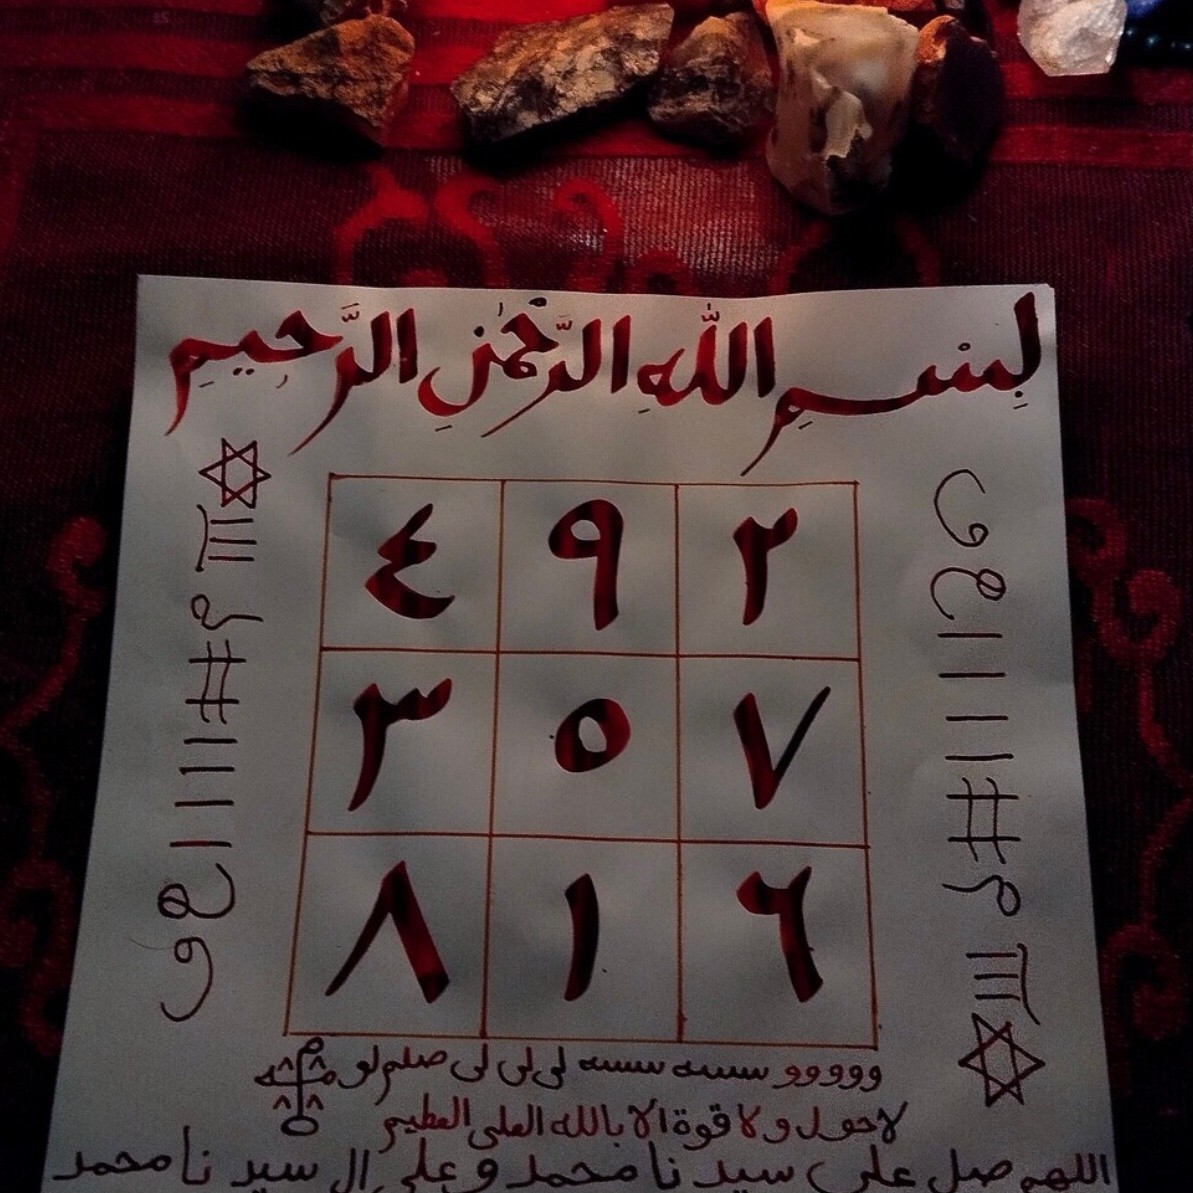 بِسْمِ اللّٰهِ الرَّحْمٰنِ الرَّحِيمِ
٤ ٩ ٢
٣ ٥ ٧
٨ ١ ٦
ووووو سسسه سسسه لى لى لى صلم لو
لا حول ولا قوة الا بالله العلى العظيم
اللهم صل على سيدنا محمد وعلى ال سيدنا محمد